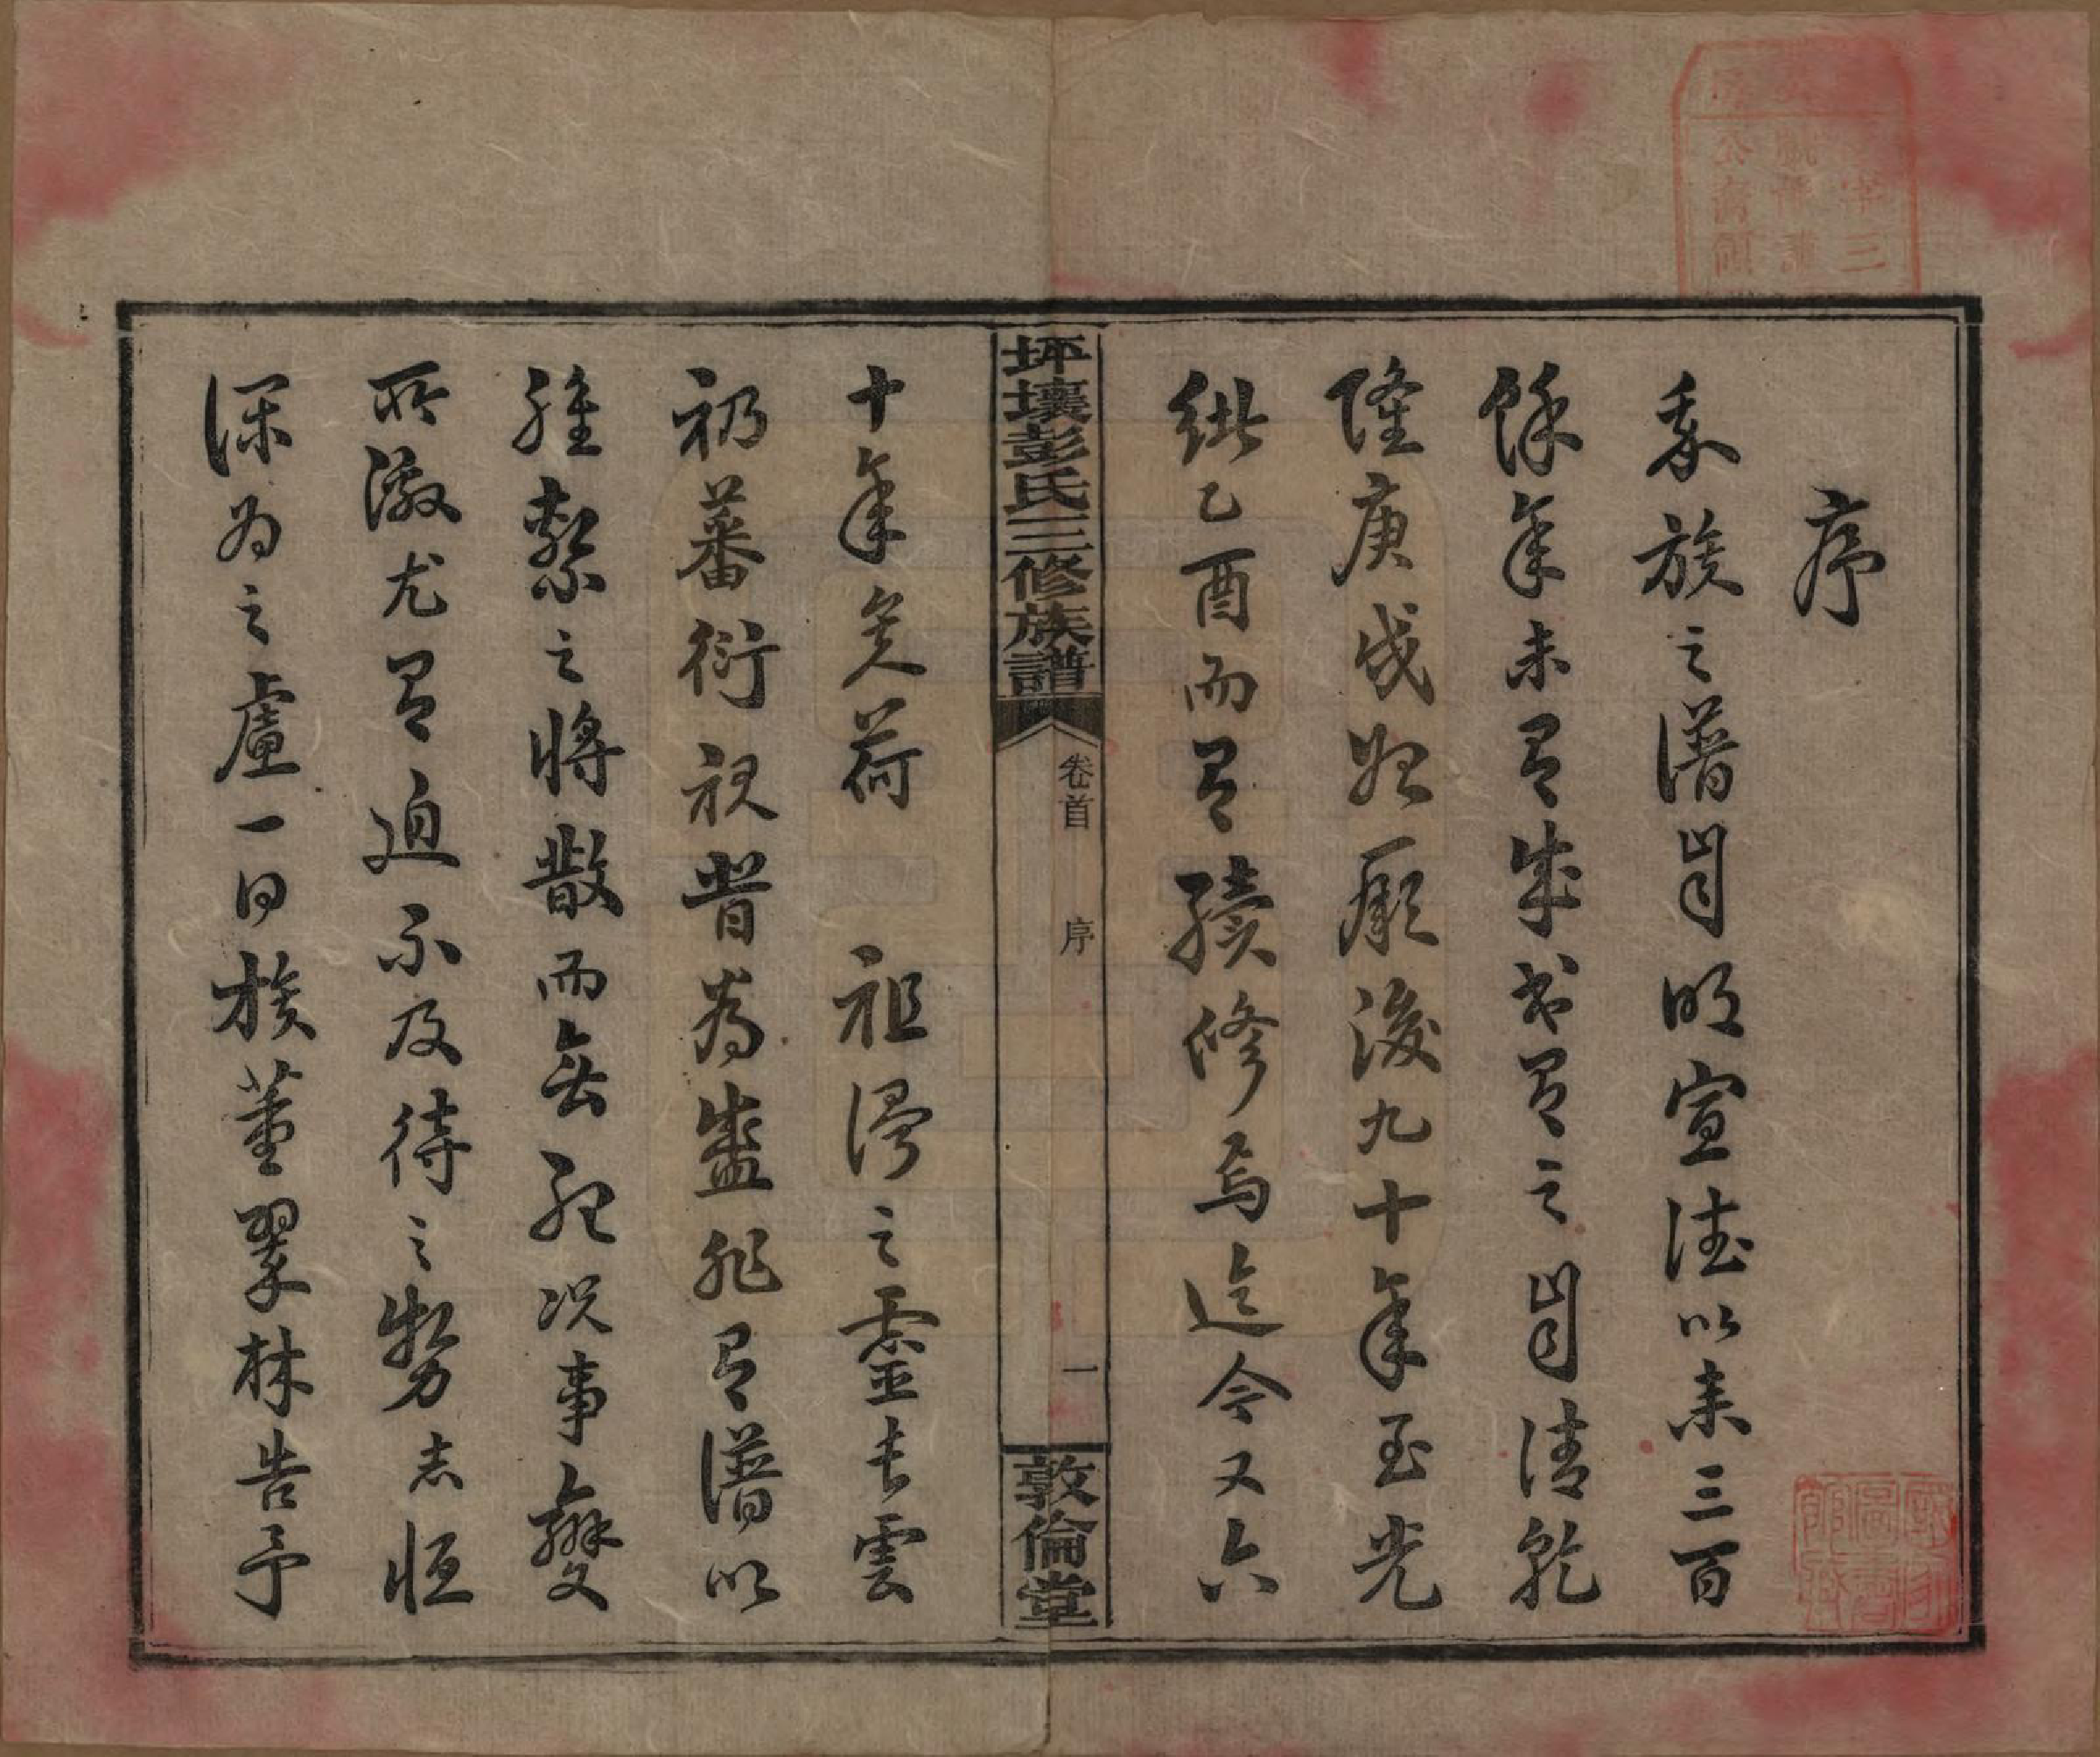 序
我族之譜前明宣德以来三百
餘年未有成書有之前清乾
隆庚戌始厥後九十年至光
緒乙酉而有續修焉迄今又六
坪壤彭氏三修族譜 卷首 序 一 敦倫堂
十年矣荷 祖澤之靈長雲
礽蕃衍視昔為盛非有譜以
維繫之將散而無紀況事變
所激尤有迫不及待之勢志恆
深為之慮一日族董翠林告予